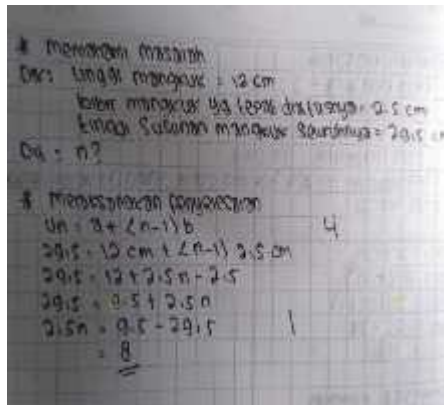 * memahami masalah
Dik : tinggi mangkuk = 12 cm
mangkuk yg tepat diatasnya = 2.5 cm
tinggi susunan mangkuk seluruhnya = 29,5 cm
Dit = n?
* melaksanakan penyelesaian
Un = a + (n-1) b
4
29,5 = 12 cm + (n-1) 2.5 cm
29,5 = 12 + 2.5n - 2.5
29,5 = 9.5 + 2.5n
2.5n = 9.5 - 29,5
1
= 8